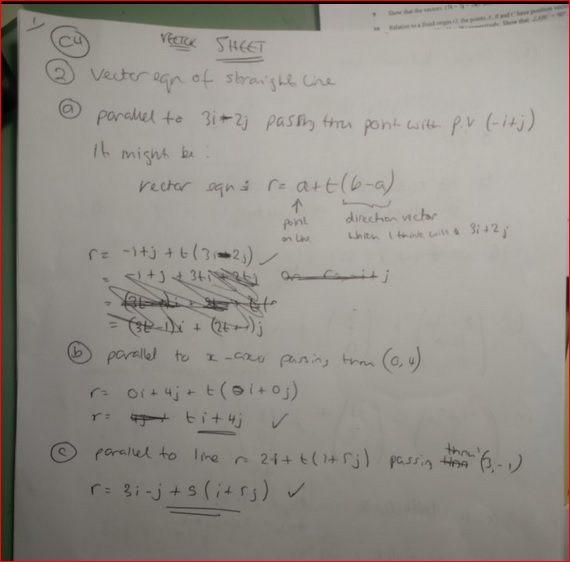 9 Show that the vectors
10 Relative to a fixed origin O, the points
C4 VECTOR SHEET
2 Vector eqn of straight line
a parallel to 3i-2j passing thru point with p.v (-i+j)
It might be:
vector eqn is r = a+t(b-a)
point on line
direction vector
which I think will be 3i+2j
r = -i+j + t(3i-2j) ✓
= -i+j + 3ti+2tj
= (3t-1)i + (2t+1)j
b parallel to x-axis passing thru (0,4)
r = 0i+4j + t(i+0j)
r = ti+4j ✓
c parallel to line r = 2i+t(i+5j) passing thru (3,-1)
r = 3i-j + s(i+5j) ✓